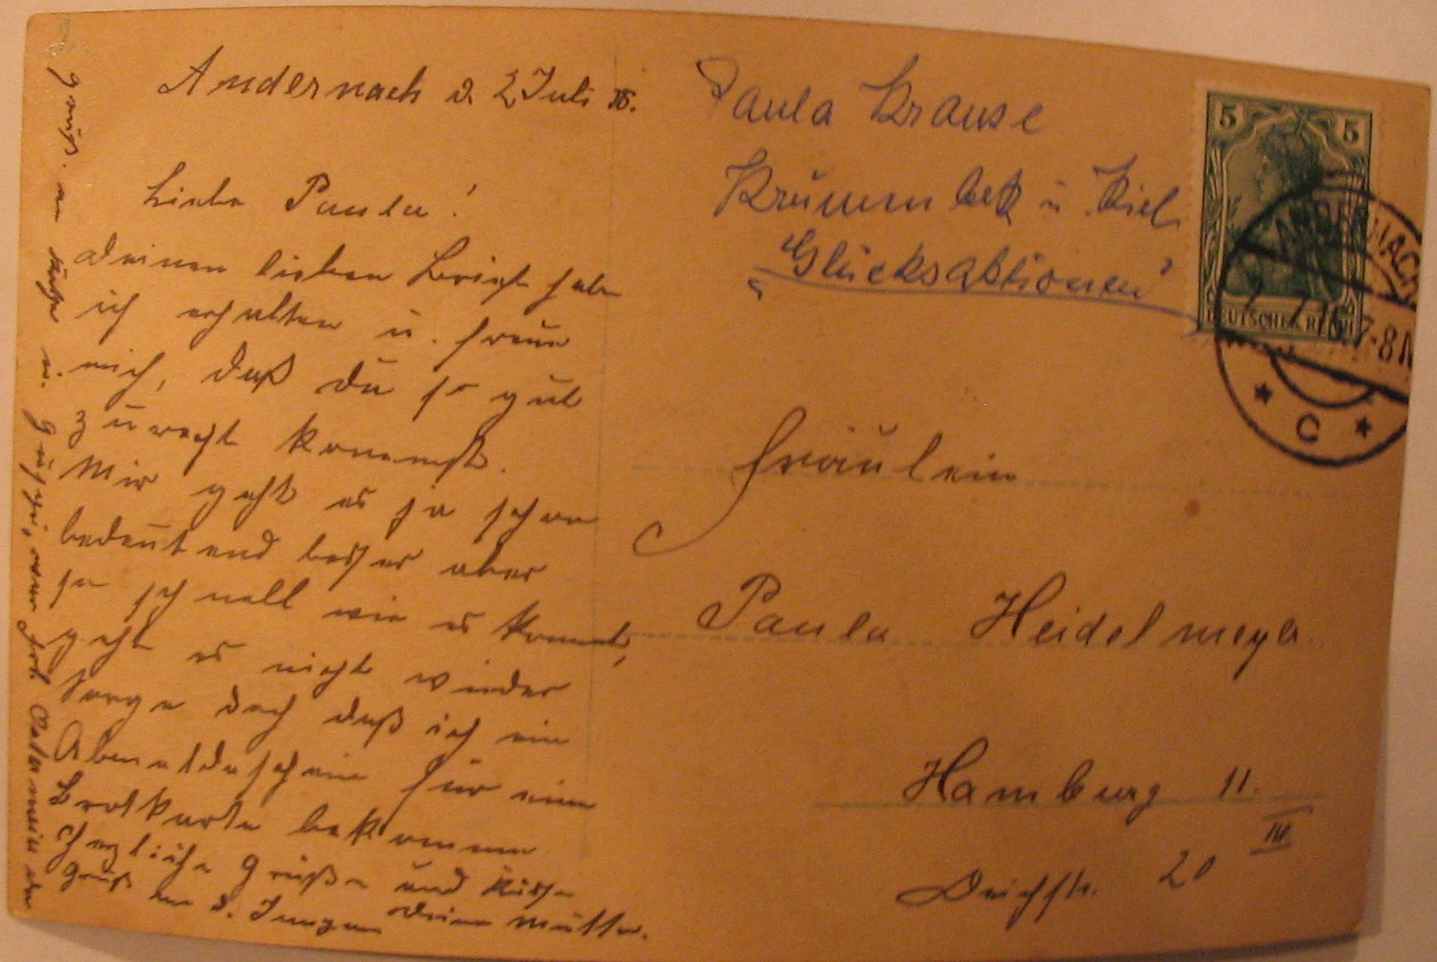 Andernach d. 2 Juli 15.
Liebe Paula!
Deinen lieben Brief habe
ich erhalten u. freue
mich, daß du so gut
zurecht kommst.
Mir geht es ja schon
bedeutend besser aber
so schnell wie es kommt,
geht es nicht wieder
Sorge doch daß ich ein
Abmeldeschein für eine
Brotkarte bekomme
herzliche Grüße und Küsse
Gruß an d. Jungen Deine Mutter.
Gruß. an
Paula Krause
Krummbek u Kiel
"Glücksaktionen"
5 5
DEUTSCHES REICH
ANDERNACH
7-8N
* C *
Fräulein
Paula Heidelmeyer
Hamburg 11.
III
Deichstr. 20